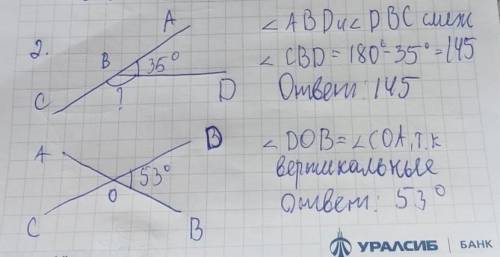 2.
A
B
35°
C
?
D
∠ABD и ∠DBC смеж
∠CBD = 180° - 35° = 145
Ответ: 145
A
D
O
53°
C
B
∠DOB = ∠COA, т.к
вертикальные
Ответ: 53°
УРАЛСИБ | БАНК